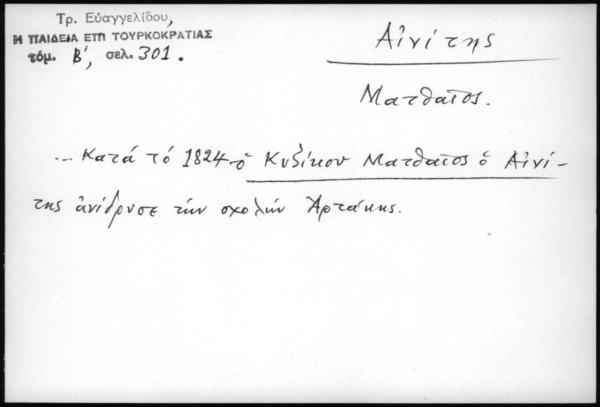 Τρ. Εὐαγγελίδου,
Η ΠΑΙΔΕΙΑ ΕΠΙ ΤΟΥΡΚΟΚΡΑΤΙΑΣ
τόμ. Β', σελ. 301.
Αἰνίτης
Ματθαῖος.
... Κατά τό 1824 ὁ Κυζίκου Ματθαῖος ὁ Αἰνί-
της ἀνίδρυσε τήν σχολήν Ἀρτάκης.